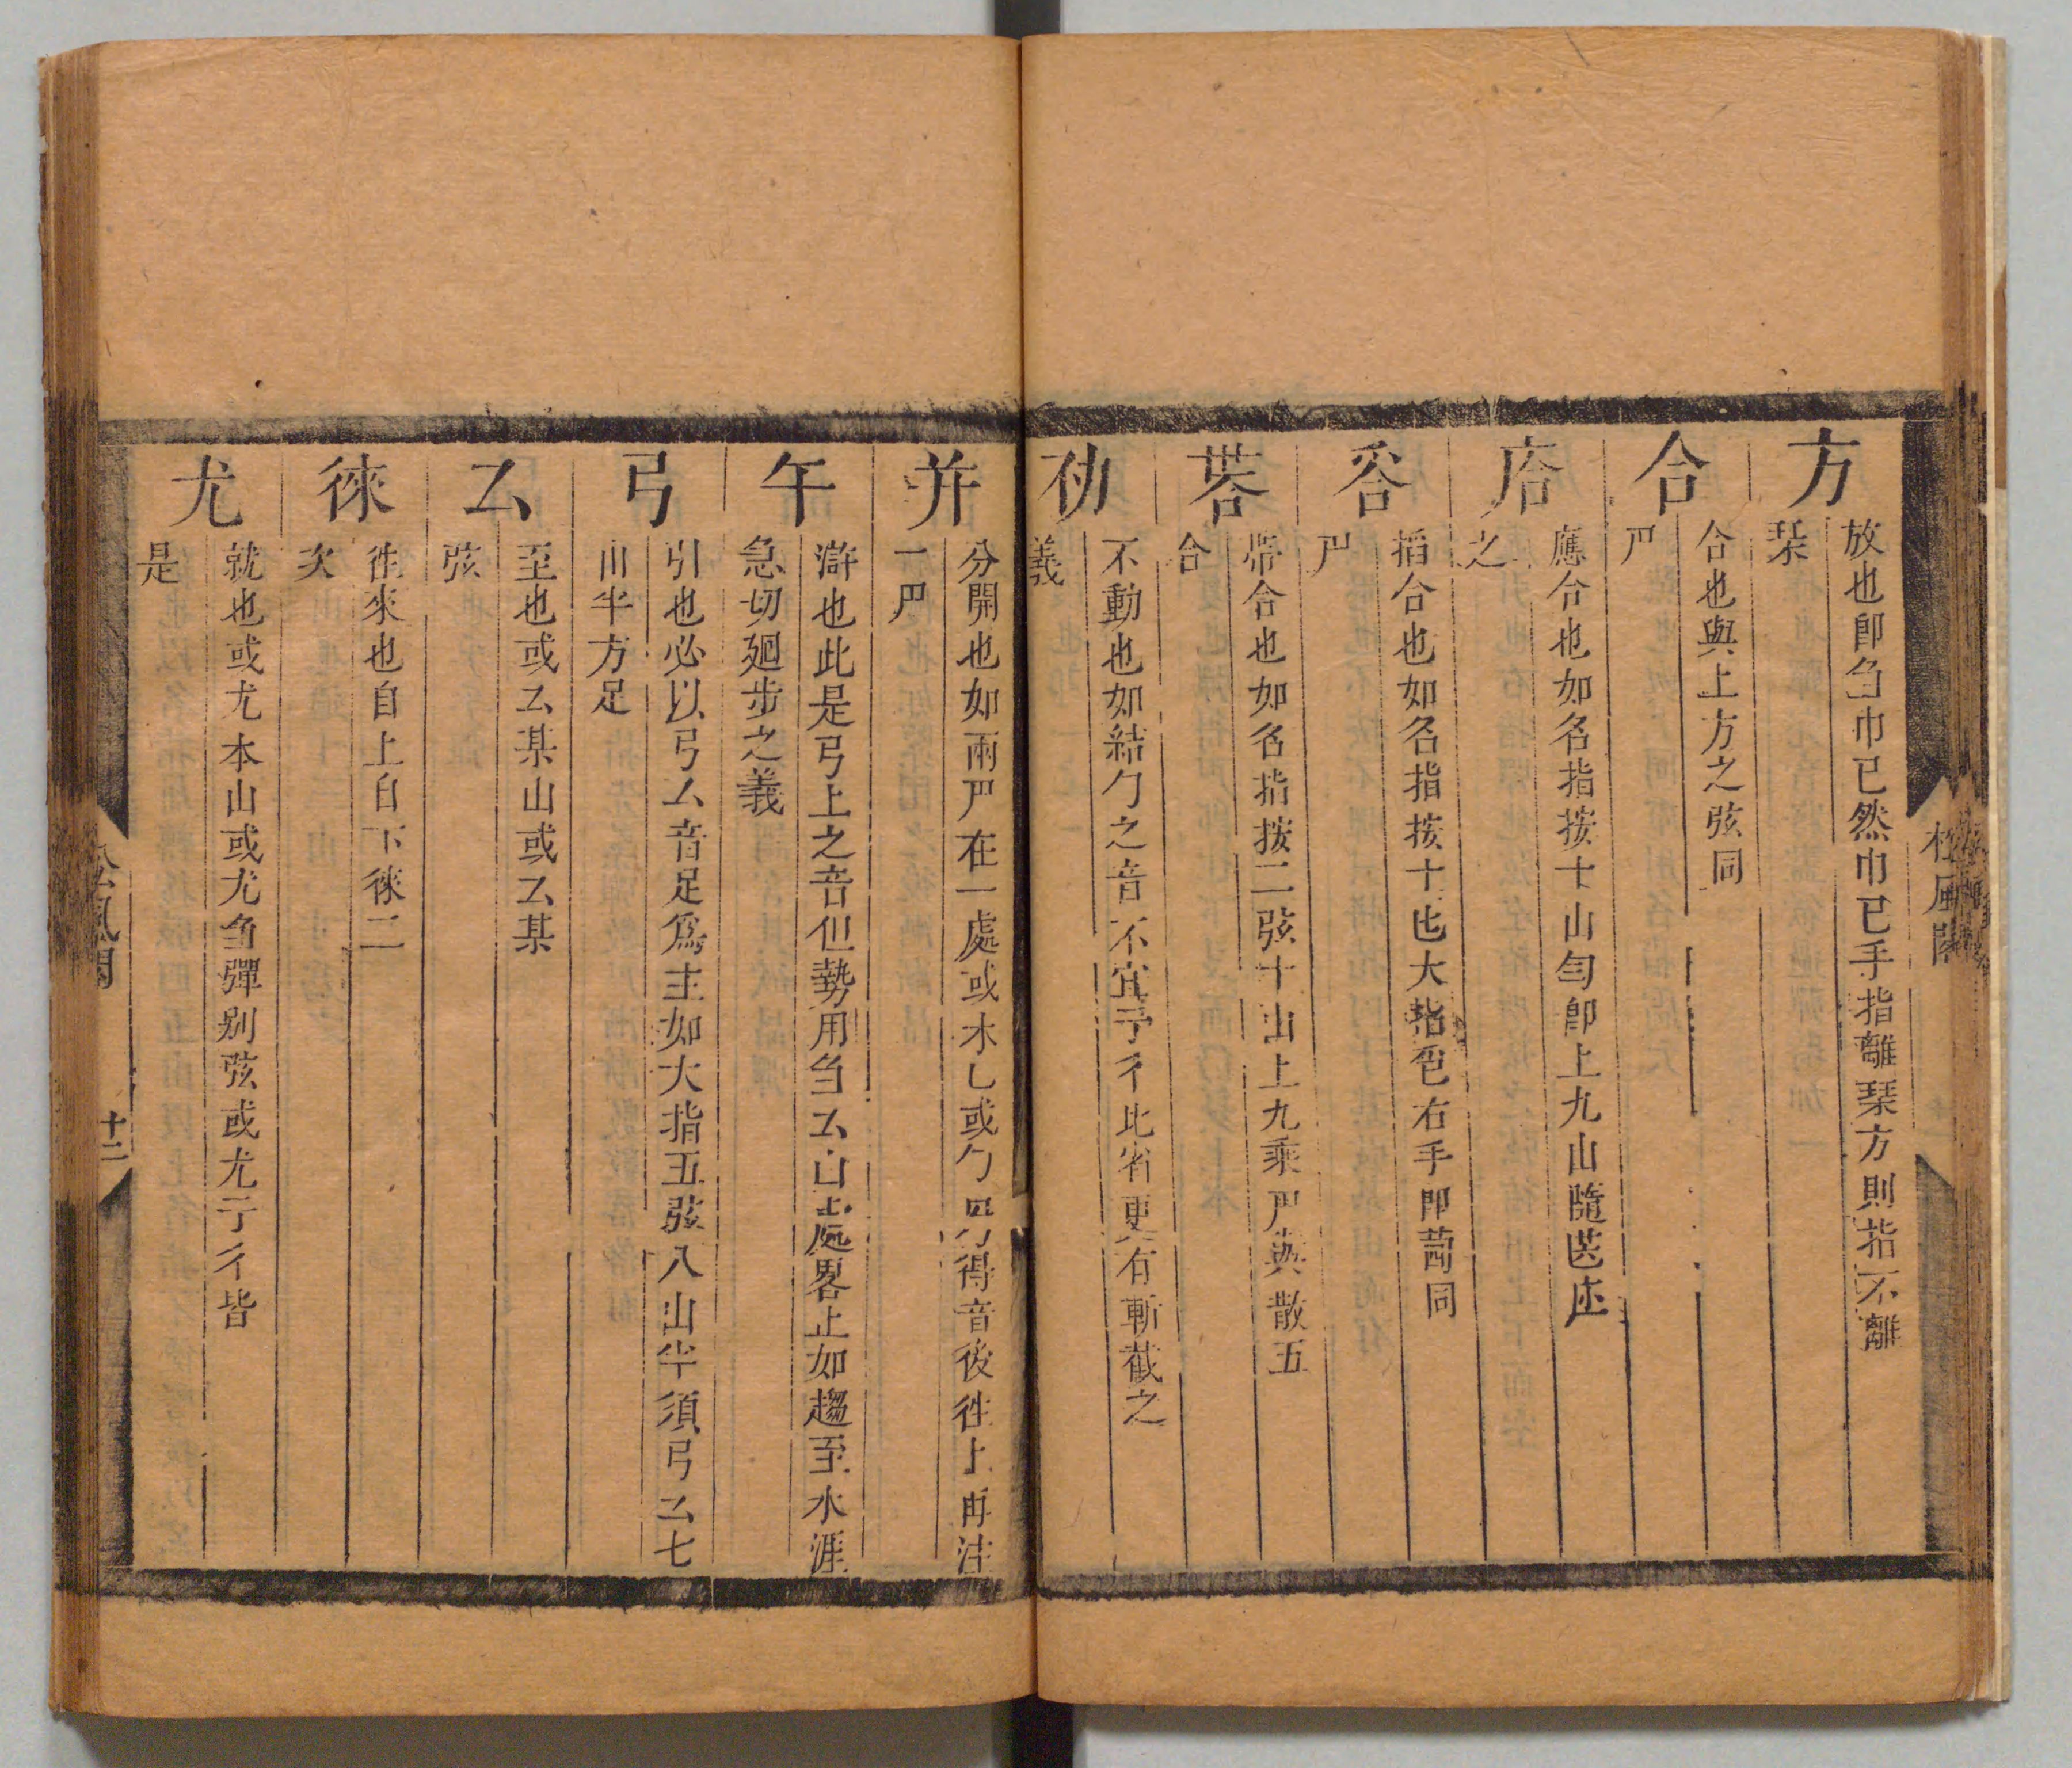 方
放也卽刍巾已然巾已手指離琹方則指不離
琹
合
合也與上方之弦同
𠃜
㕎
應合也如名指按十山匀卽上九山隨
之
㕣
搯合也如名指按十也大指卽右手即同
𠃜
荅
帶合也如名指按二弦十山上九乘散五
合
不動也如結勹之音不宜予彳比省更有斬截之
義
并
分開也如兩𠃜在一處或木乚或勹得音後徃上再注
一𠃜
午
滸也此是弓上之音但勢用刍厶山上處畧止如趨至水涯
急切廻步之義
弓
引也必以弓厶音足爲主如大指五弦八山半須弓厶七
山半方足
厶
至也或厶某山或厶某
弦
徠
徃來也自上自下徠二
次
尤
就也或尤本山或尤刍彈别弦或尤亍彳皆
是
松風閣
十二